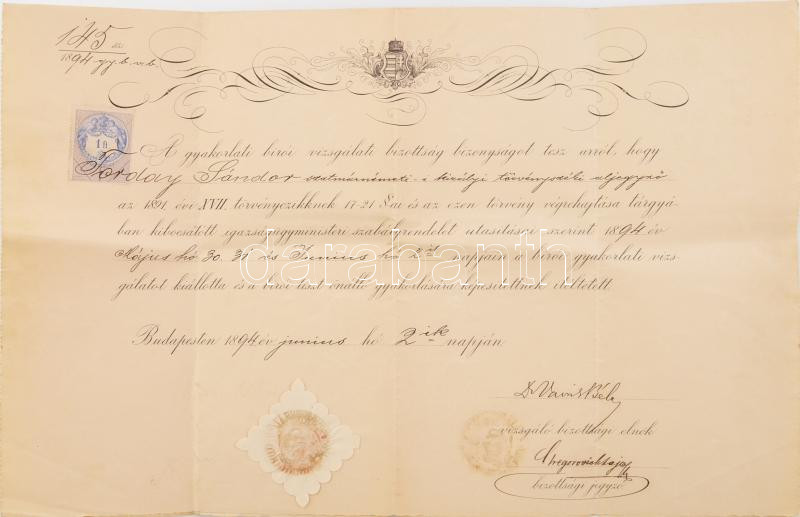 145 sz.
1894 gy. b. v. b.
1 ft
A gyakorlati birói vizsgálati bizottság bizonyságot tesz arról, hogy
Torday Sándor szatmárnémeti-i királyi törvényszéki aljegyző
az 1891. évi XVII. törvényczikknek 17-21 §-ai és az ezen törvény végrehajtása tárgyá-
ban kibocsátott igazságügyministeri szabályrendelet utasításai szerint 1894 év
Május hó 30. 31 és Junius hó 2ik napjain a birói gyakorlati vizs-
gálatot kiállotta és a birói tiszt önálló gyakorlására képesítettnek itéltetett.
darabanth
Budapesten 1894 év junius hó 2ik napján
Dr Vavrik Béla
vizsgáló bizottsági elnök
bizottsági jegyző